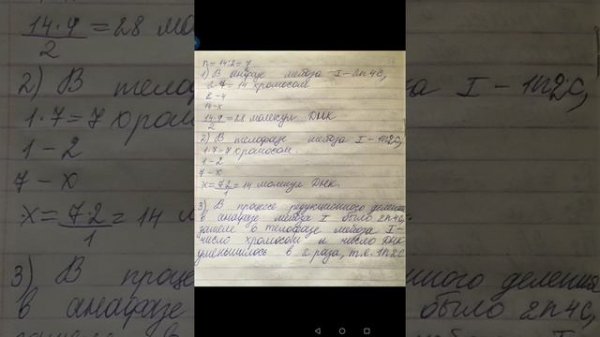 n = 14:2 = 7
1) В анафазе мейоза I - 2n4c,
2·7 = 14 хромосом
2 - 4
14 - x
14·4/2 = 28 молекул ДНК
2) В телофазе мейоза I - 1n2c,
1·7 = 7 хромосом.
1 - 2
7 - x
x = 7·2/1 = 14 молекул ДНК.
3) В процессе редукционного деления
в анафазе мейоза I было 2n4c,
затем в телофазе мейоза I -
число хромосом и число ДНК
уменьшилось в 2 раза, т.е. 1n2c